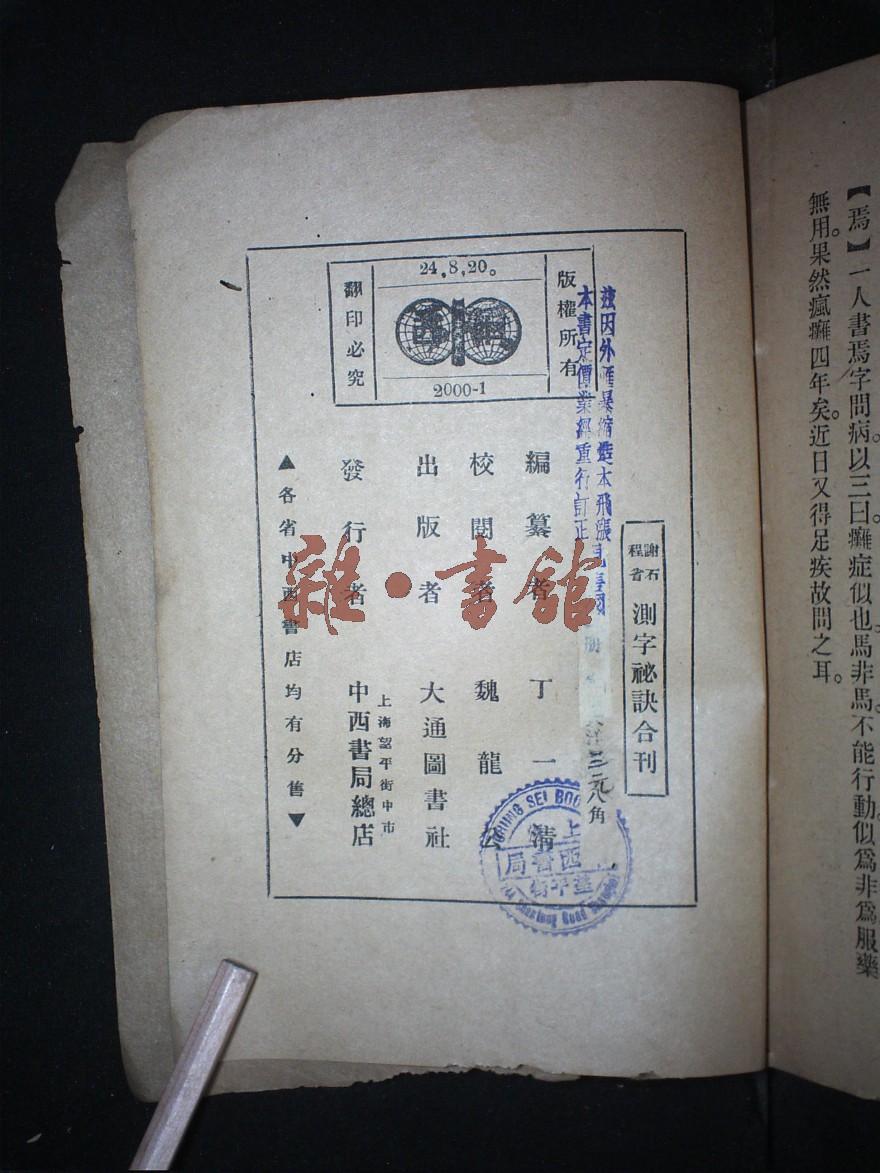 【焉】一人書焉字問病。以三曰。癱症似也。馬非馬。不能行動。似爲非爲。服藥
無用。果然瘋癱四年矣。近日又得足疾。故問之耳。
謝石
程省
測字祕訣合刊
茲因外匯暴縮造本飛漲
本書定價業經重行訂正
冊
三元八角
版權所有
24,8,20。
2000-1
翻印必究
編纂者 丁一清
校閱者 魏龍
出版者 大通圖書社
發行者
上海望平街中市
中西書局總店
▲各省中西書店均有分售▼
雜·書館
上
西書局
望平街
CHUNG SEI BOO
Shantung Road Shanghai